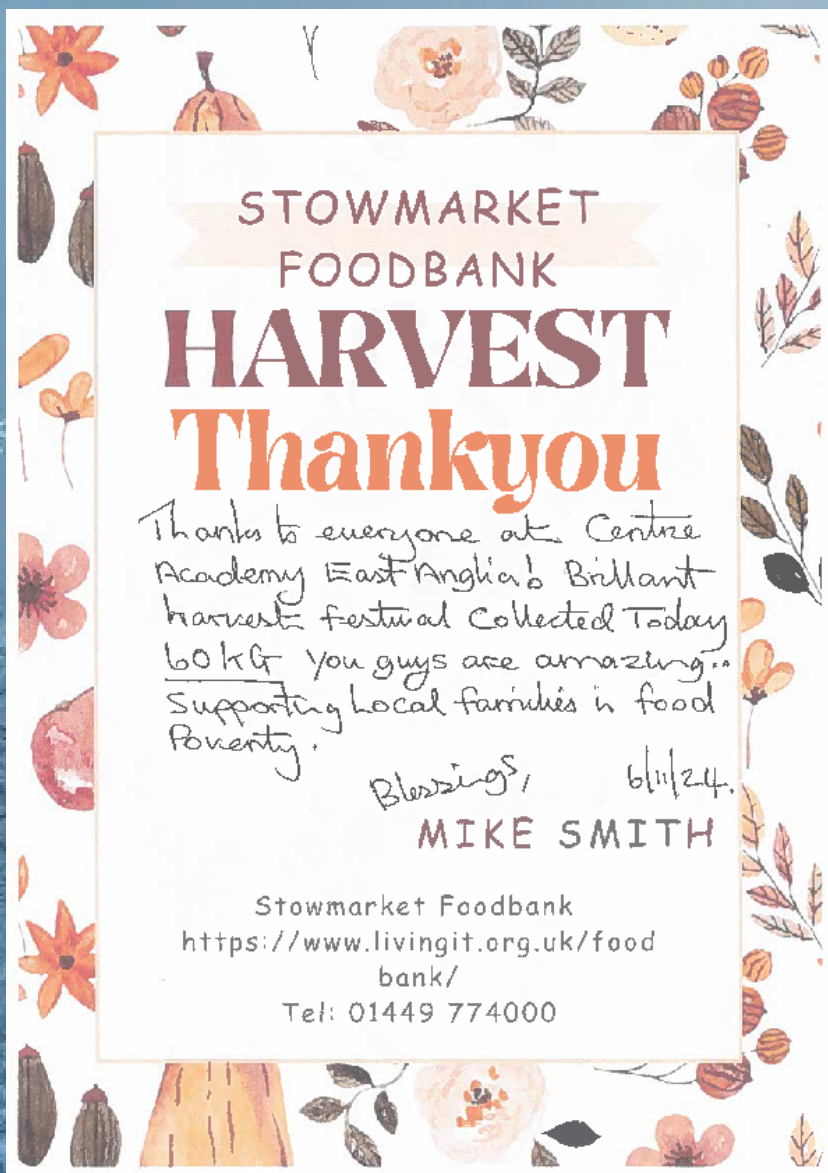 STOWMARKET
FOODBANK
HARVEST
Thankyou
Thanks to everyone at Centre
Academy East Anglia! Brillant
harvest festival Collected Today
60KG You guys are amazing..
Supporting Local families in food
Poverty.
Blessings, 6/11/24.
MIKE SMITH
Stowmarket Foodbank
https://www.livingit.org.uk/food
bank/
Tel: 01449 774000